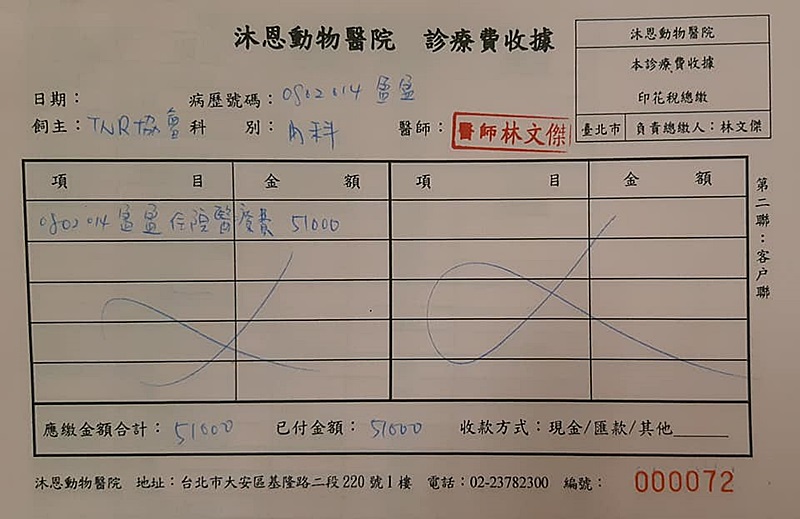 沐恩動物醫院 診療費收據
沐恩動物醫院
本診療費收據
印花稅總繳
臺北市 負責總繳人:林文傑
日期: 病歷號碼:0802014 孟孟
飼主:TNR協會 科 別:內科 醫師:醫師林文傑
項 目 金 額 項 目 金 額
0802014 孟孟住院醫療費 51000
應繳金額合計:51000 已付金額:51000 收款方式:現金/匯款/其他______
第二聯:客户聯
沐恩動物醫院 地址:台北市大安區基隆路二段220號1樓 電話:02-23782300 編號: 000072